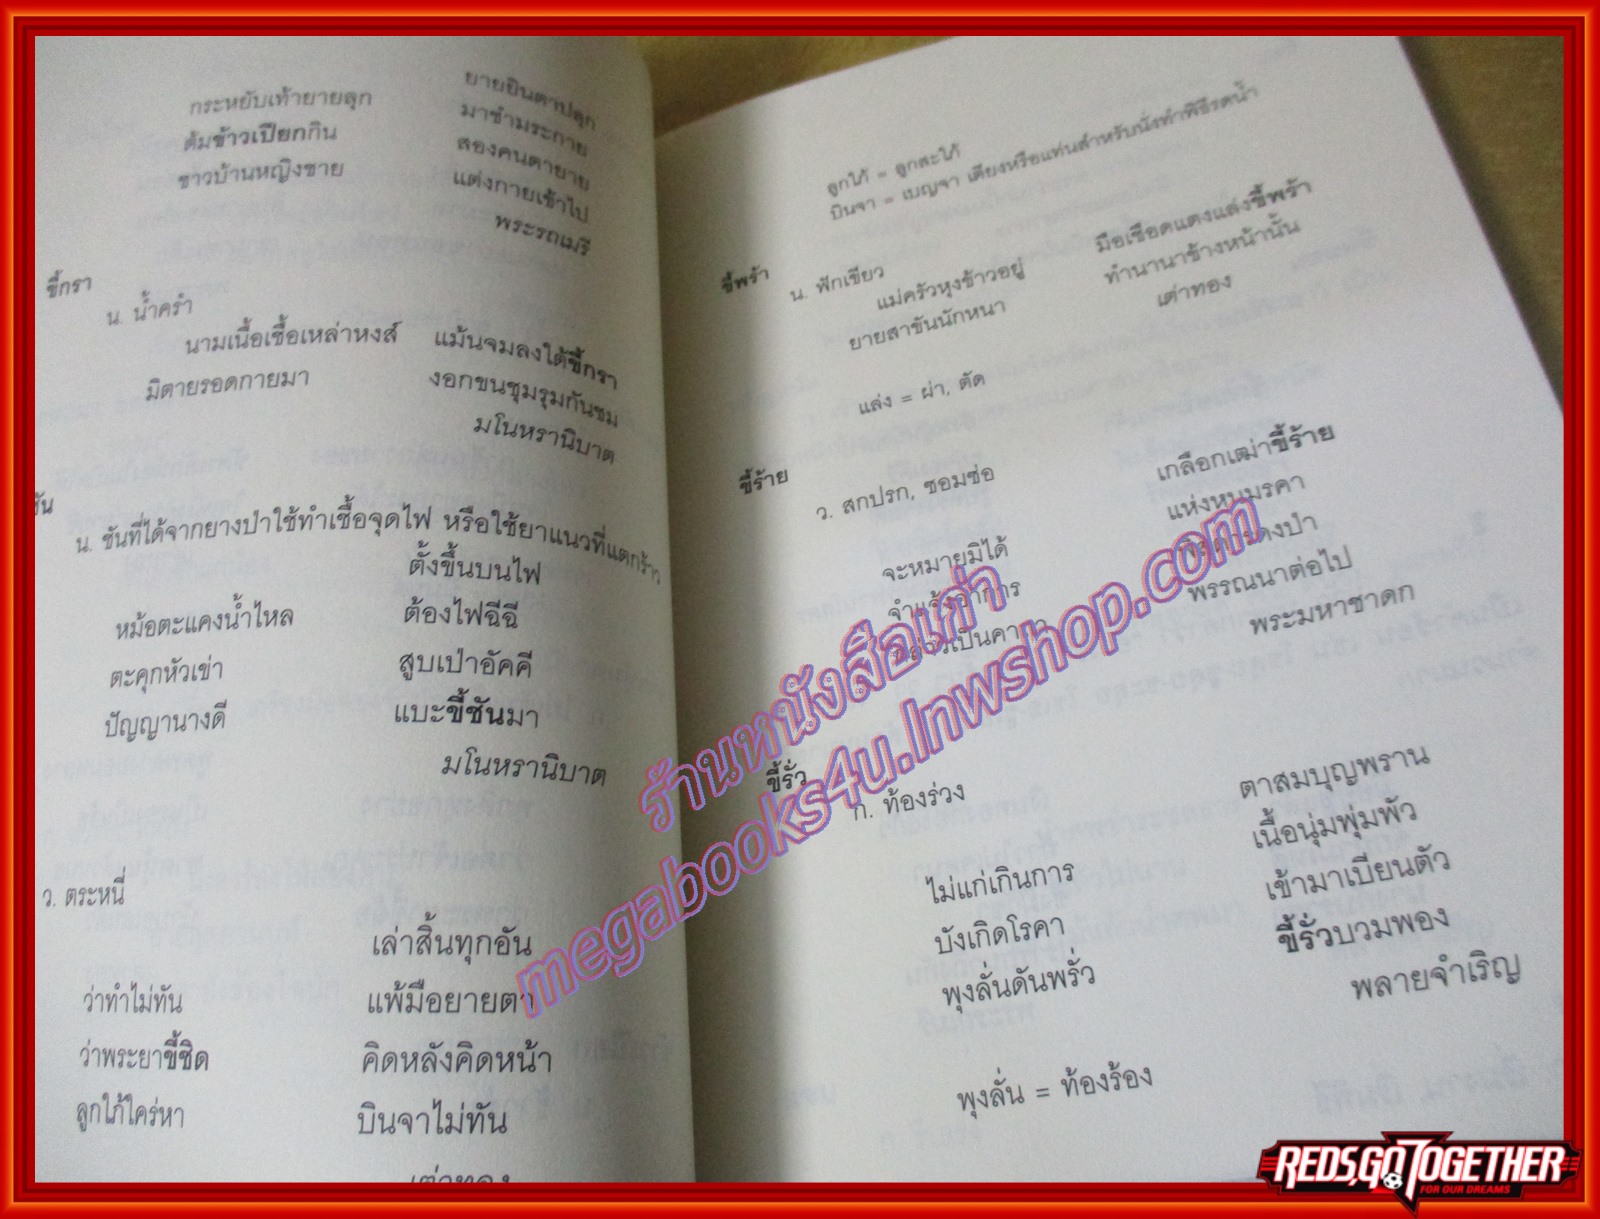 กระหยับเท้ายายลุก ยายอินตาปลุก
ต้มข้าวเปียกกิน มาชำมระกาย
ชาวบ้านหญิงชาย สองคนตายาย
แต่งกายเข้าไป
พระรถเมรี
ขี้กรา
น. น้ำครำ
นามเนื้อเชื้อเหล่าหงส์ แม้นจมลงใต้ขี้กรา
มิตายรอดกายมา งอกขนชุมรุมกันชม
มโนหรานิบาต
ชัน
น. ชันที่ได้จากยางป่าใช้ทำเชื้อจุดไฟ หรือใช้ยาแนวที่แตกร้าว
ตั้งขึ้นบนไฟ
หม้อตะแคงน้ำไหล ต้องไฟฉีฉี
ตะคุกหัวเข่า สูบเป่าอัคคี
ปัญญานางดี แบะขี้ชันมา
มโนหรานิบาต
ว. ตระหนี่
เล่าสิ้นทุกอัน
ว่าทำไม่ทัน แพ้มือยายตา
ว่าพระยาขี้ชิด คิดหลังคิดหน้า
ลูกใภ้ใคร่หา บินจาไม่ทัน
เต่าทอง
ลูกใภ้ = ลูกสะใภ้
บินจา = เบญจา เตียงหรือแท่นสำหรับนั่งทำพิธีรดน้ำ
ขี้พร้า
น. ฟักเขียว
แม่ครัวหุงข้าวอยู่ มือเชือดแตงแล่งขี้พร้า
ยายสาขันนักหนา ทำนานาข้างหน้านั้น
เต่าทอง
แล่ง = ผ่า, ตัด
ขี้ร้าย
ว. สกปรก, ซอมซ่อ
เกลือกเฒ่าขี้ร้าย
จะหมายมิได้ แห่งหนมรคา
จำแจ้งอาการ
พรรณนาต่อไป
พระมหาชาดก
ขี้รั่ว
ก. ท้องร่วง
ตาสมบุญพราน
ไม่แก่เกินการ เนื้อนุ่มพุ่มพัว
บังเกิดโรคา เข้ามาเบียนตัว
พุงลั่นดันพรั่ว ขี้รั่วบวมพอง
พลายจำเริญ
พุงลั่น = ท้องร้อง
ร้านหนังสือเก่า
megabooks4u.lnwshop.com
REDS,GO TOGETHER
FOR OUR DREAMS